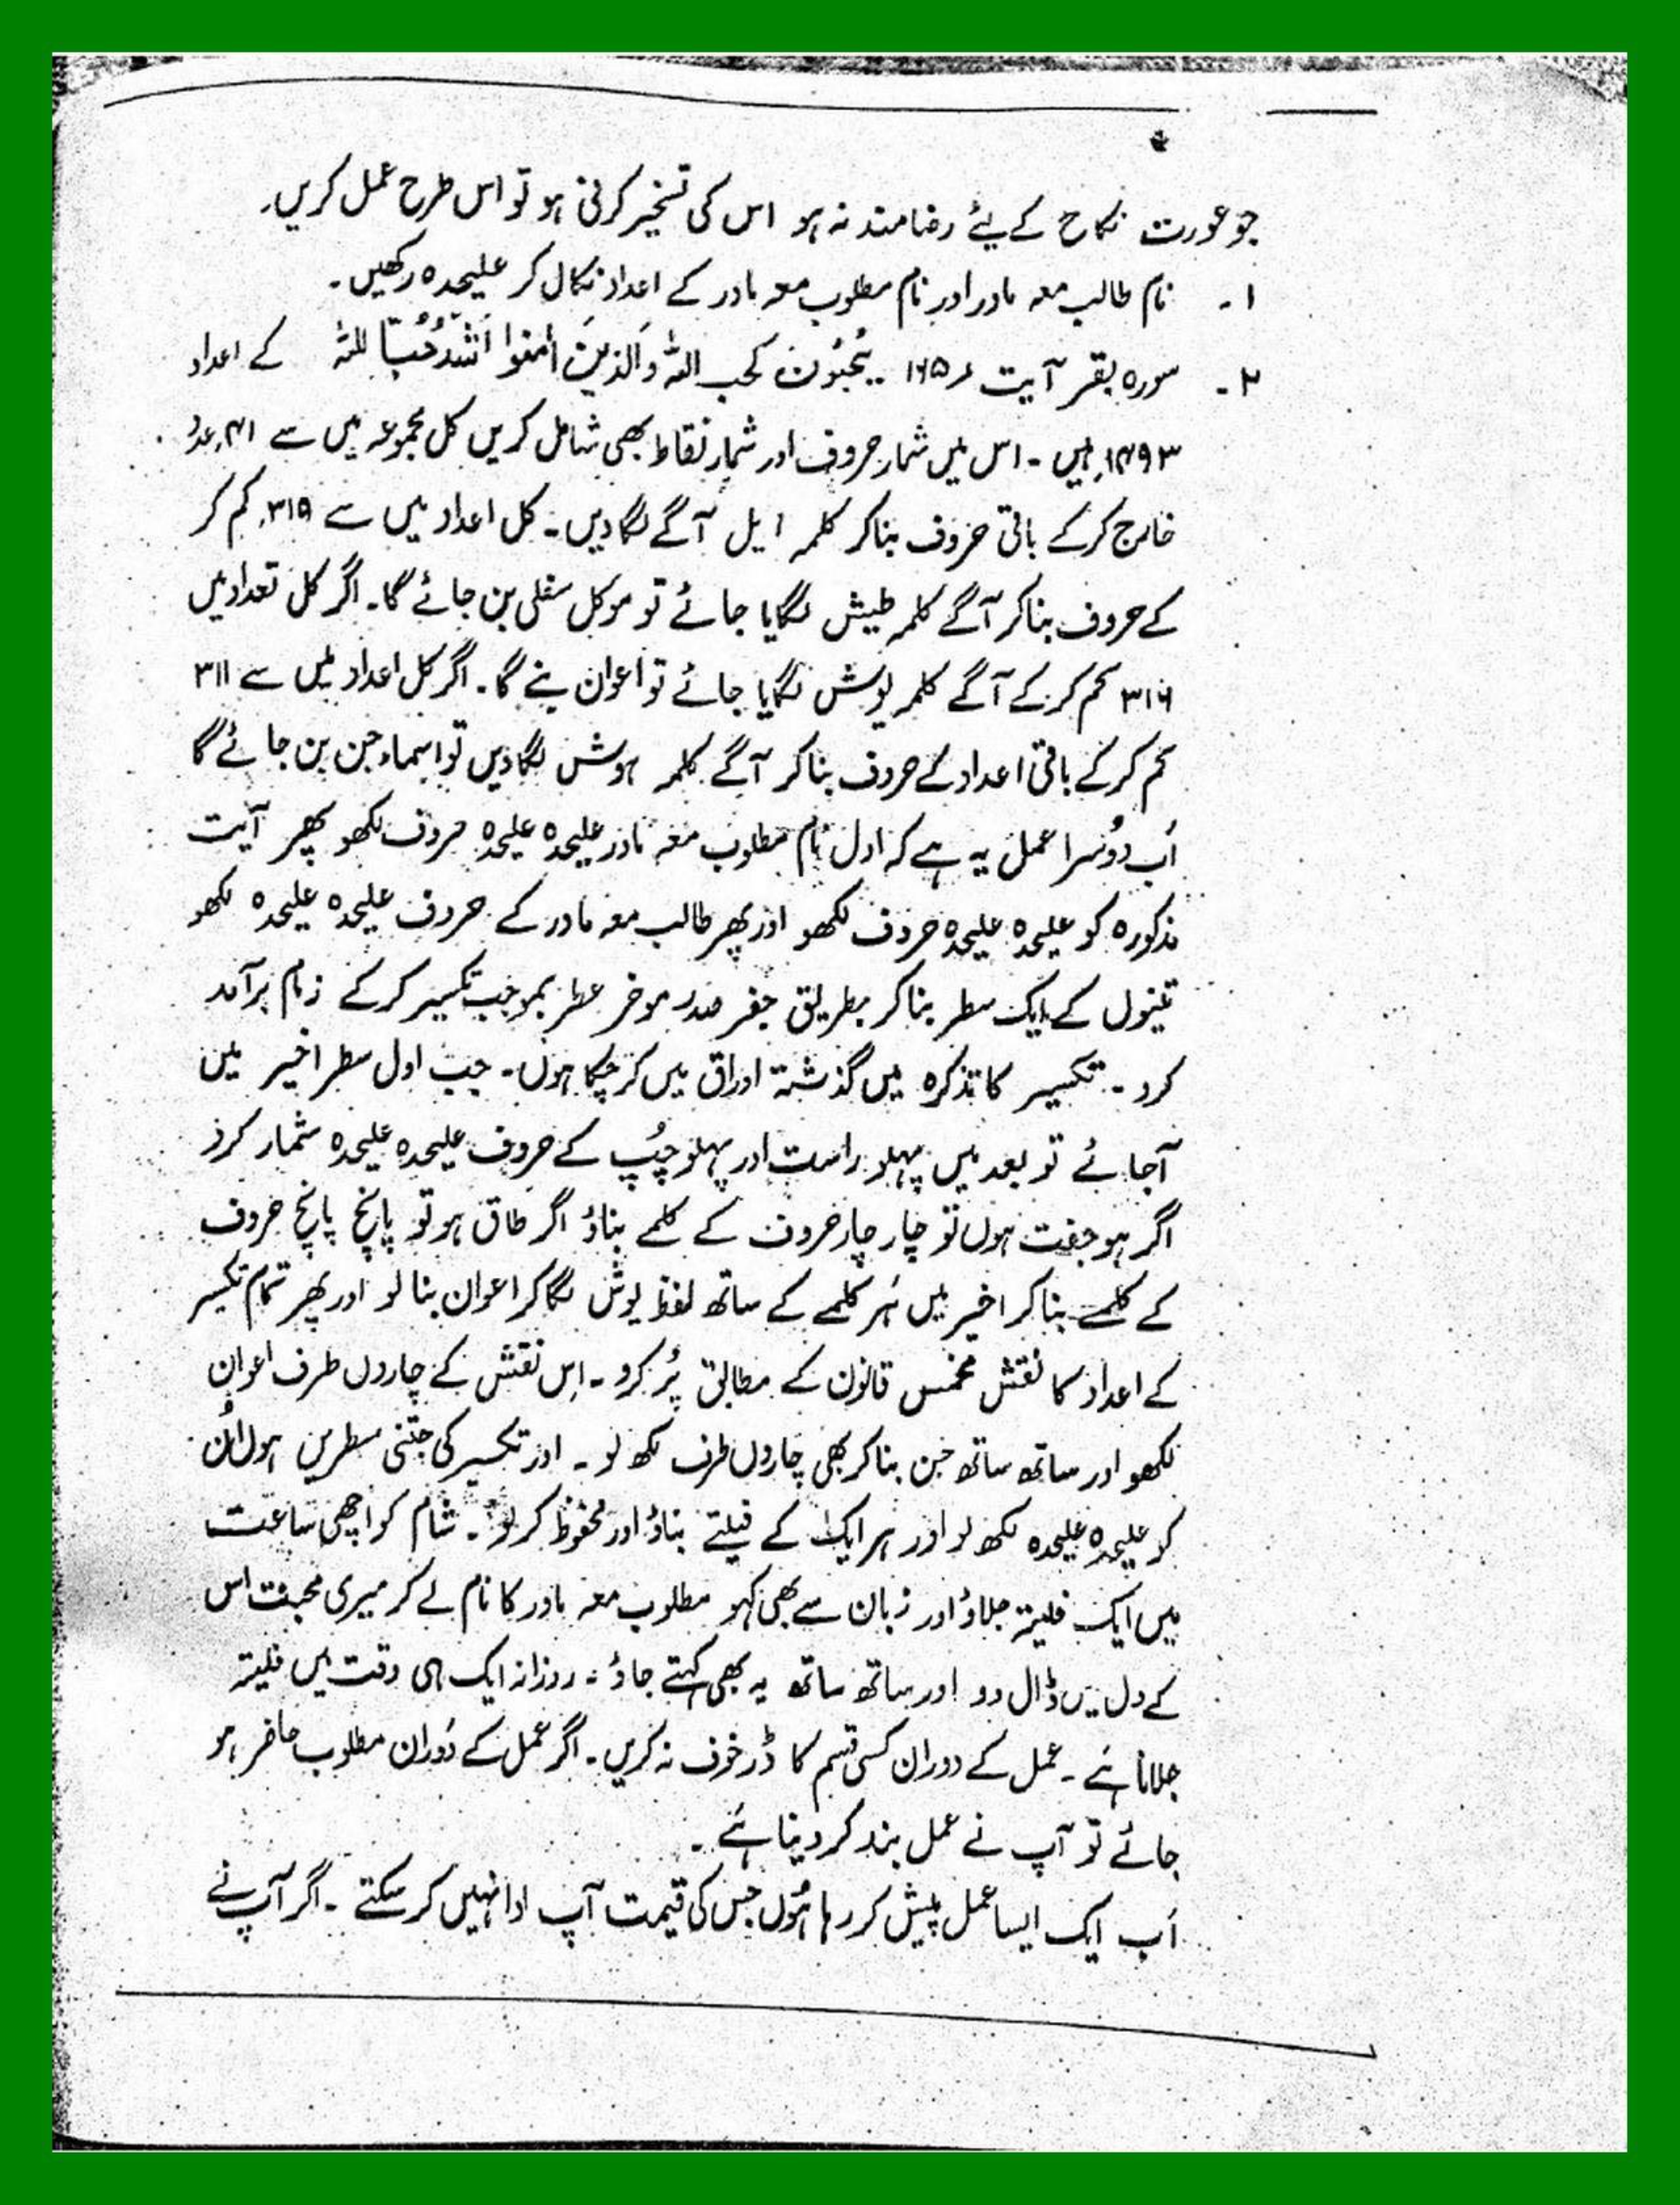 جو عورت نکاح کے لیئے رضامند نہ ہو اس کی تسخیر کرنی ہو تو اس طرح عمل کریں۔
۱۔ نام طالب معہ مادر اور نام مطلوب معہ مادر کے اعداد نکال کر علیحدہ رکھیں۔
۲۔ سورہ بقر آیت ۱۶۵ ۔۔ یُحِبُّونَ کحب اللہ وَالذینَ اٰمنوا اَشَدُّحُبّاً للہ کے اعداد
۱۴۹۳ ہیں ۔ اس میں شمار حروف اور شمار نقاط بھی شامل کریں کل مجموعہ میں سے ۴۱ عدد
خارج کرکے باقی حروف بنا کر کلمہ ایل آگے لگا دیں ۔ کل اعداد میں سے ۳۱۹ کم کر
کے حروف بنا کر آگے کلمہ طیش لگایا جائے تو موکل سفلی بن جائے گا۔ اگر کل تعداد میں
۳۱۶ کم کرکے آگے کلمہ یوش لگایا جائے تو اعوان بنے گا۔ اگر کل اعداد میں سے ۳۱۱
کم کرکے باقی اعداد کے حروف بنا کر آگے کلمہ ہوش لگا دیں تو اسماء جن بن جائے گا
اَب دُوسرا عمل یہ ہے کہ اول نام مطلوب معہ مادر علیحدہ علیحدہ حروف لکھو پھر آیت
مذکورہ کو علیحدہ علیحدہ حروف لکھو اور پھر طالب معہ مادر کے حروف علیحدہ علیحدہ لکھو
تینوں کے ایک سطر بنا کر بطریق جفر صدر موخر بموجب تکسیر کرکے زمام برآمد
کرو ۔ تکسیر کا تذکرہ میں گذشتہ اوراق میں کر چکا ہوں۔ جب اول سطر اخیر میں
آجائے تو بعد میں پہلو راست اور پہلو چُپ کے حروف علیحدہ علیحدہ شمار کرو
اگر ہو جفت ہوں تو چار چار حروف کے کلمے بناؤ اگر طاق ہو تو پانچ پانچ حروف
کے کلمے بنا کر اخیر میں ہَر کلمے کے ساتھ لفظ یوش لگا کر اعوان بنا لو اور پھر تمام تکسیر
کے اعداد کا نقش مخمس قانون کے مطابق پُر کرو ۔ اِس نقش کے چاروں طرف اعوان
لکھو اور ساتھ ساتھ جن بنا کر بھی چاروں طرف لکھ لو ۔ اور تکسیر کی جتنی سطریں ہوں اُن
کو علیحدہ علیحدہ لکھ لو اور ہر ایک کے فیلتے بناؤ اور محفوظ کر لو ۔ شام کو اچھی ساعت
میں ایک فلیتہ جلاؤ اور زبان سے بھی کہو مطلوب معہ مادر کا نام لے کر میری محبت اس
کے دل میں ڈال دو اور ساتھ ساتھ یہ بھی کہتے جاؤ ۔ روزانہ ایک ہی وقت میں فلیتہ
جلانا ہَے ۔ عمل کے دوران کسی قسم کا ڈر خوف نہ کریں۔ اگر عمل کے دَوران مطلوب حاضر ہو
جائے تو آپ نے عمل بند کر دینا ہَے ۔
اَب ایک ایسا عمل پیش کر رہا ہُوں جس کی قیمت آپ ادا نہیں کر سکتے ۔ اگر آپ نے